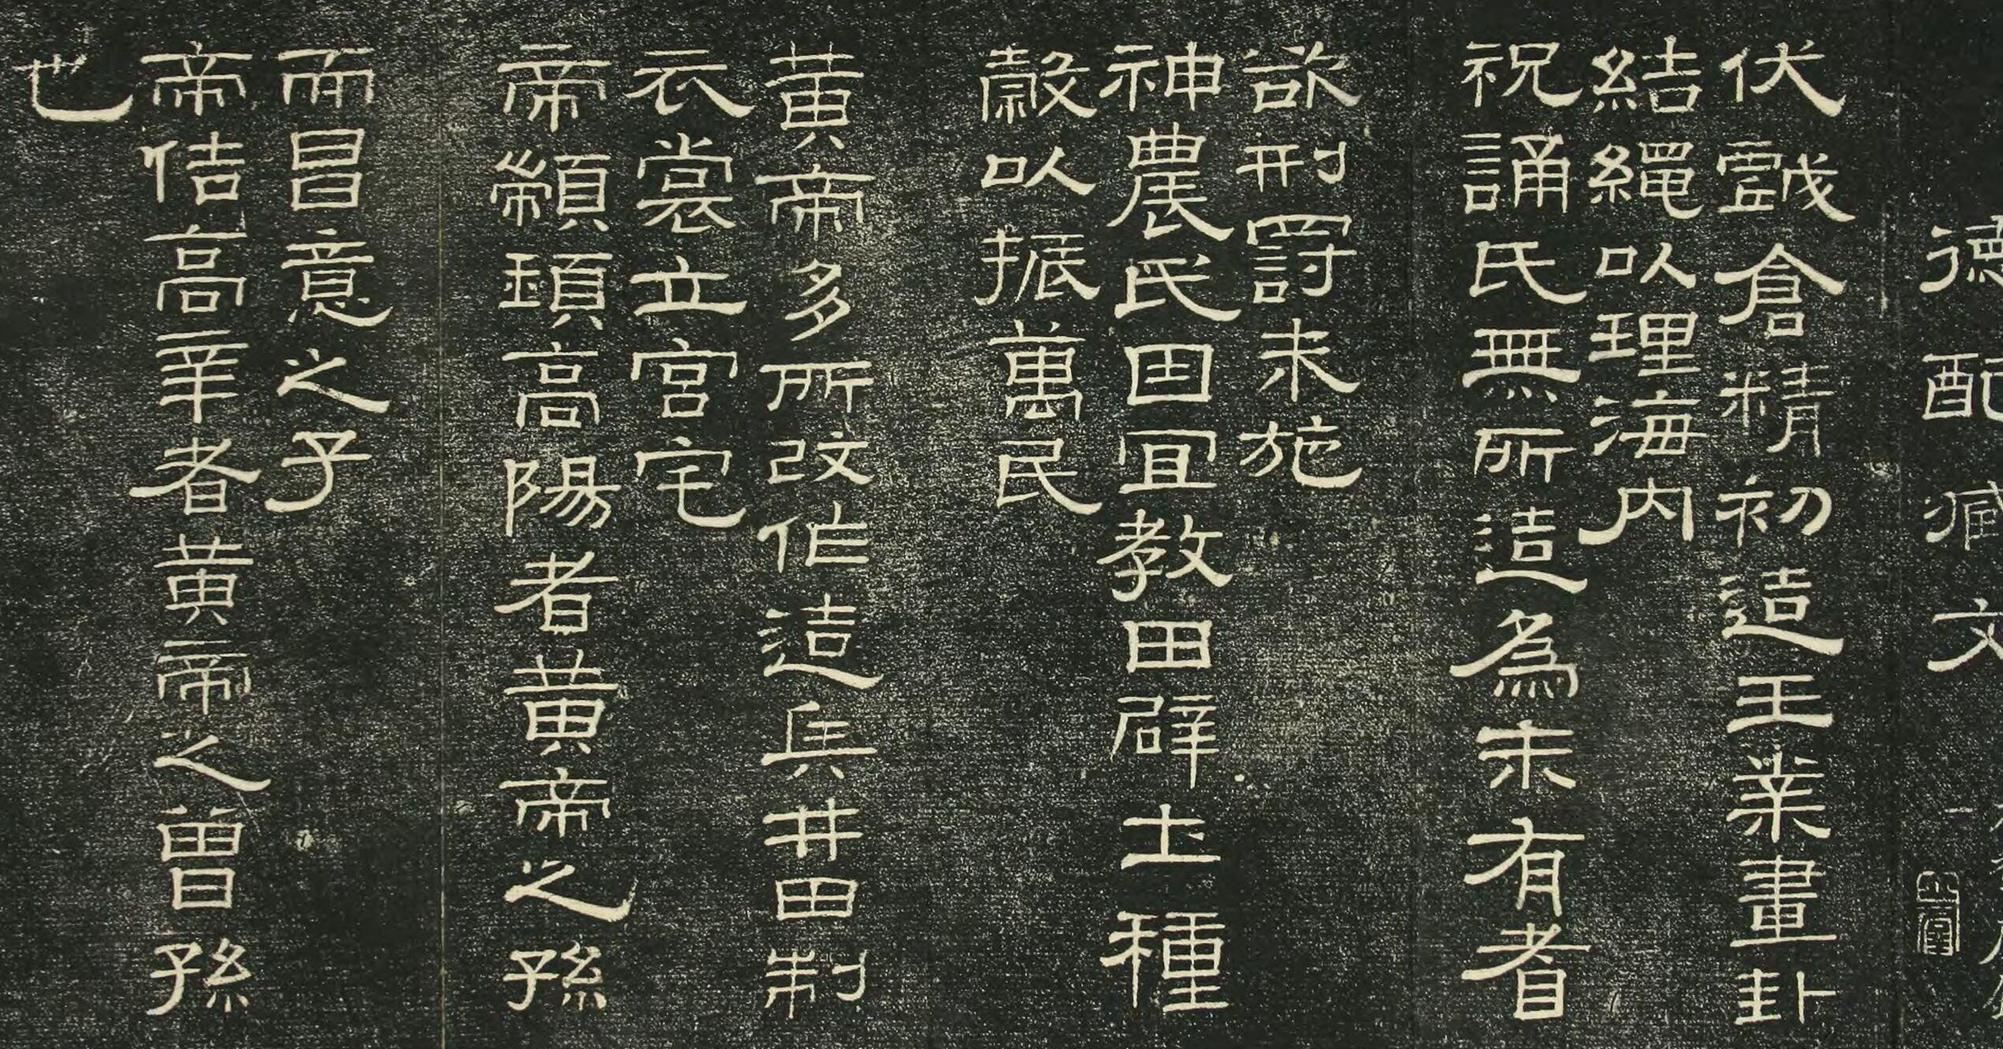 德配臧文
伏戲倉精初造王業畫卦
結繩以理海內
祝誦氏無所造為未有耆
欲刑罰未施
神農氏因宜教田辟土種
穀以振萬民
黃帝多所改作造兵井田制
衣裳立宮宅
帝顓頊高陽者黃帝之孫
而昌意之子
帝佶高辛者黃帝之曾孫
也